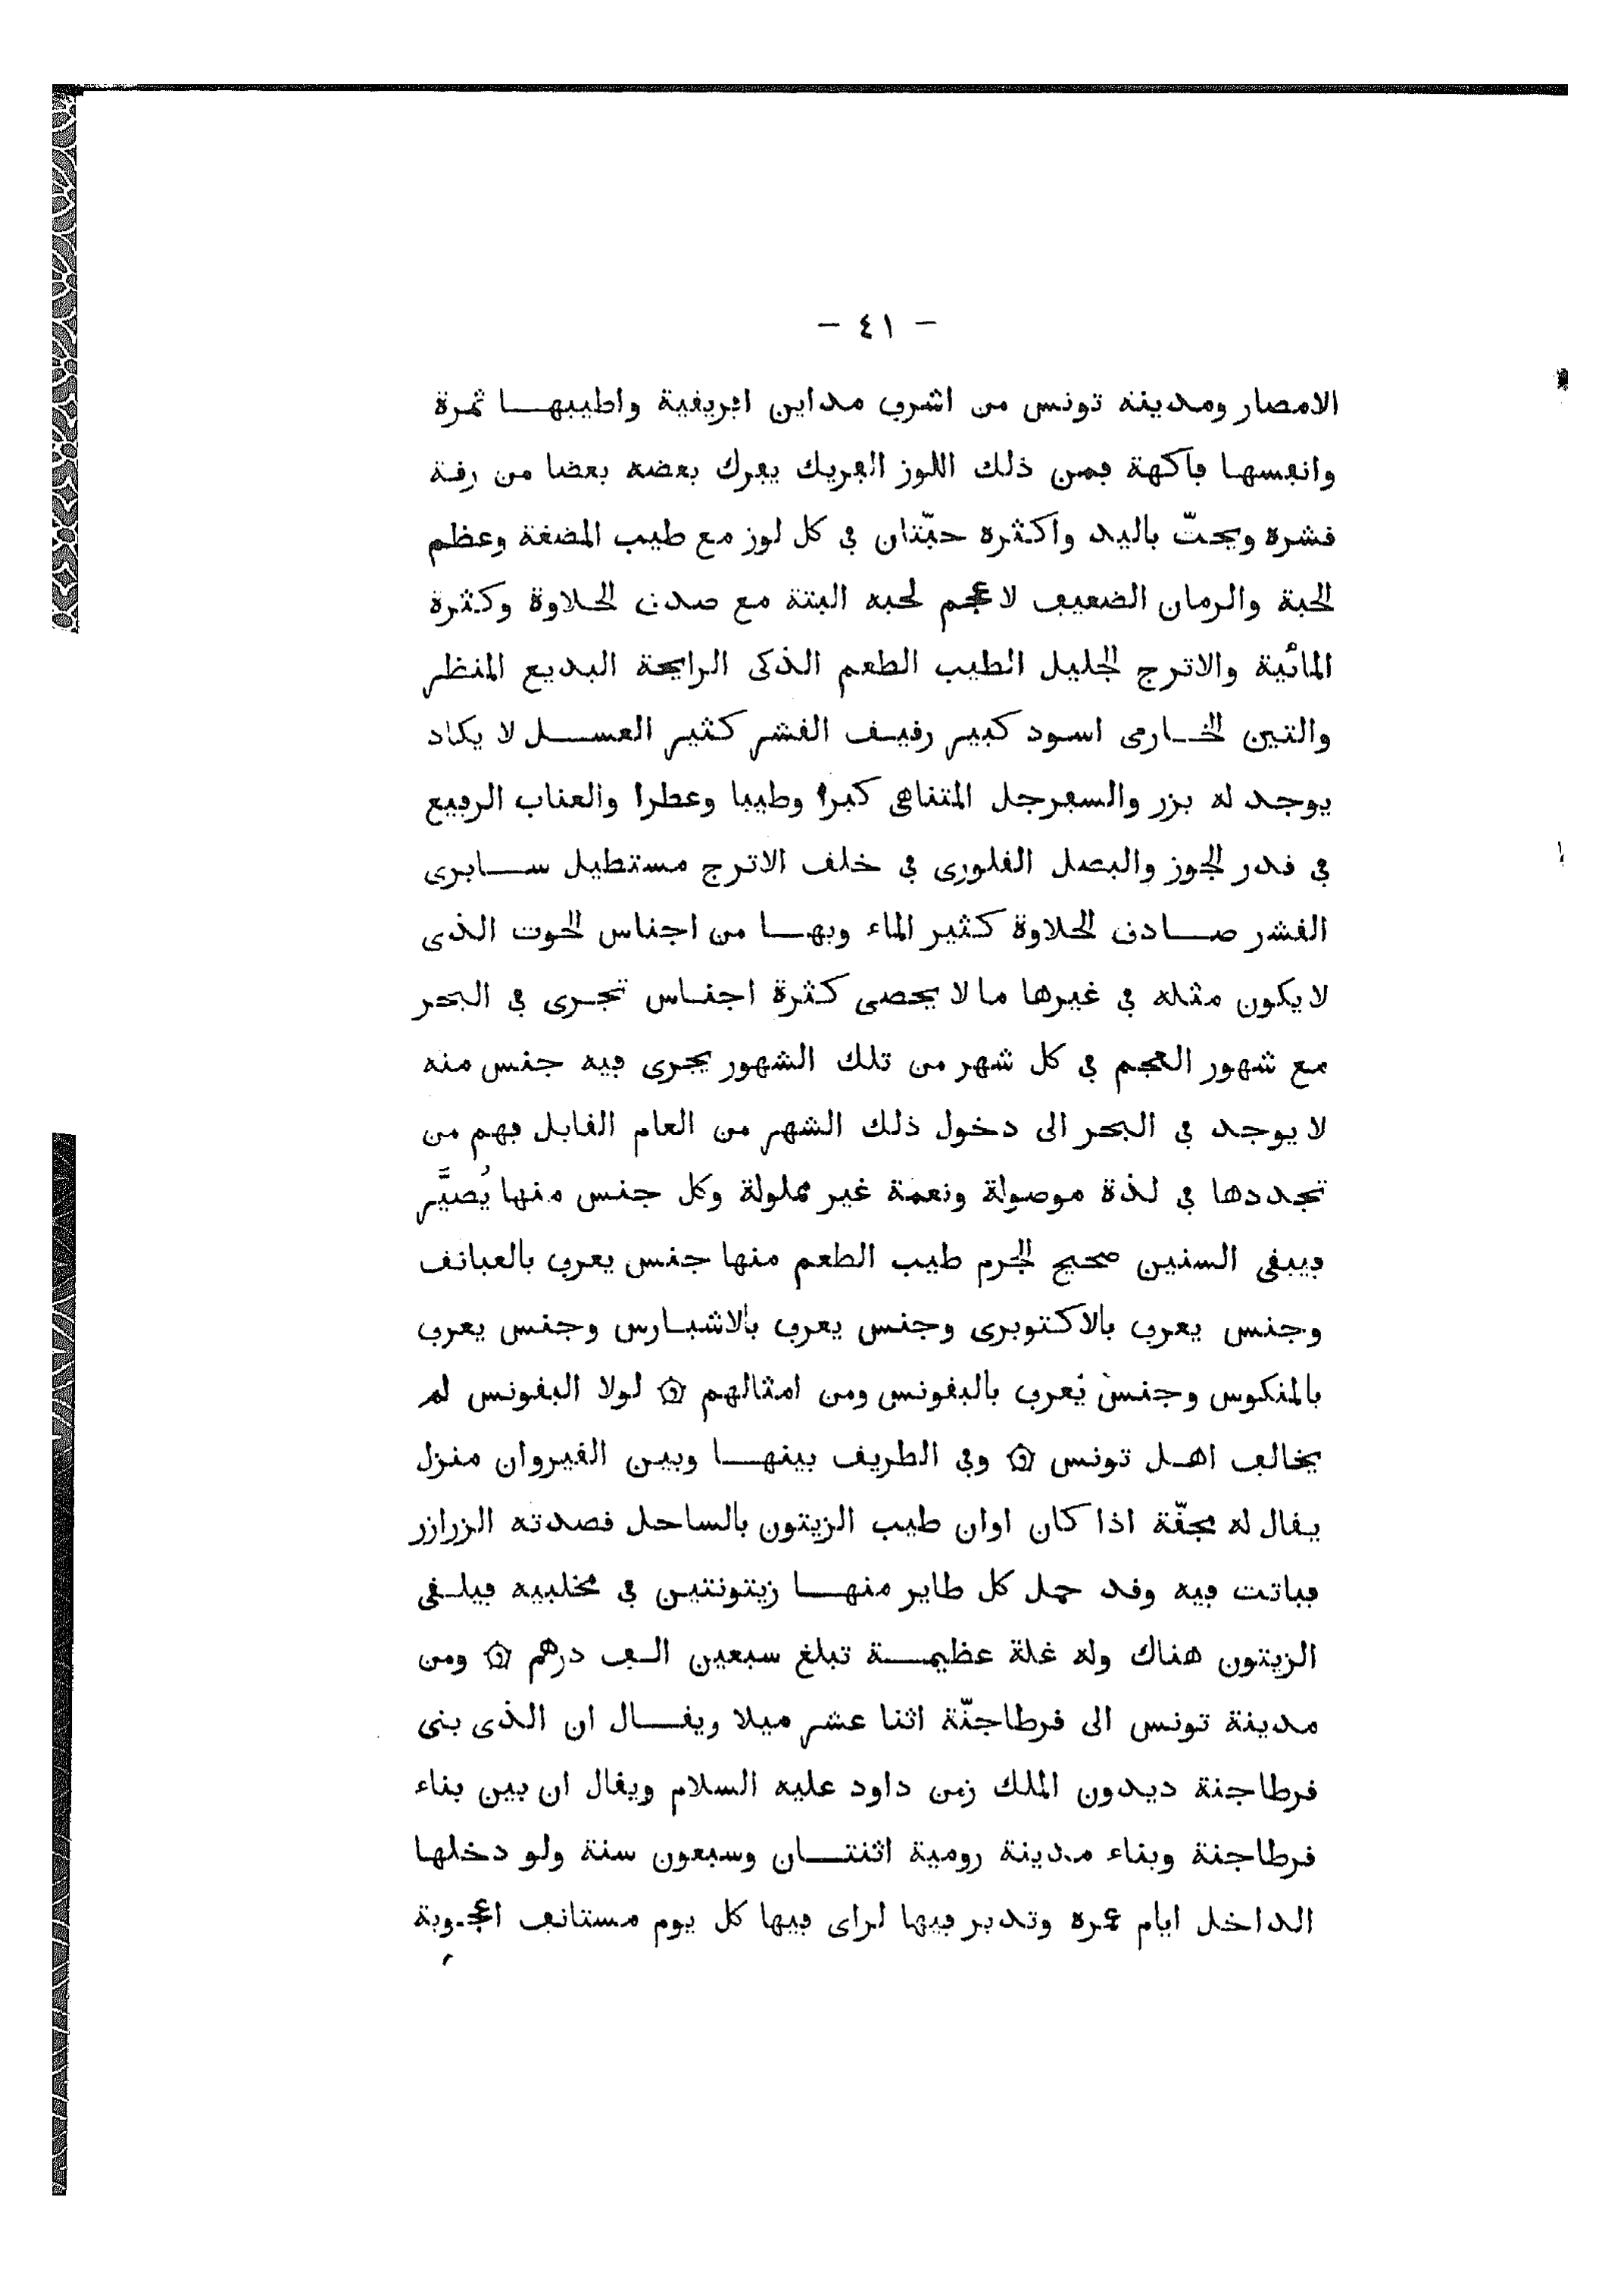 - ٤١ -
الامصار ومدينة تونس من اشرف مداين افريقية واطيبها ثمرة
وانفسها فاكهة فمن ذلك اللوز الفريك يفرك بعضه بعضا من رقة
قشره ويحتّ باليد واكثره حبّتان في كل لوز مع طيب المضغة وعظم
الحبة والرمان الضعيف لا عجم لحبه البتة مع صدق الحلاوة وكثرة
المائية والاترج الجليل الطيب الطعم الذكى الرايحة البديع المنظر
والتين الخارمى اسود كبير رقيق القشر كثير العسل لا يكاد
يوجد له بزر والسفرجل المتناهى كبرا وطيبا وعطرا والعناب الرفيع
في قدر الجوز والبصل القلورى في خلق الاترج مستطيل سابرى
القشر صادق الحلاوة كثير الماء وبها من اجناس الحوت الذى
لا يكون مثله في غيرها ما لا يحصى كثرة اجناس تجرى في البحر
مع شهور العجم في كل شهر من تلك الشهور يجرى فيه جنس منه
لا يوجد في البحر الى دخول ذلك الشهر من العام القابل فهم من
تجددها في لذة موصولة ونعمة غير مملولة وكل جنس منها يُصيَّر
فيبقى السنين صحيح الجرم طيب الطعم منها جنس يعرف بالعبانق
وجنس يعرف بالاكتوبرى وجنس يعرف بالاشبارس وجنس يعرف
بالمنكوس وجنس يُعرف بالبقونس ومن امثالهم ۞ لولا البقونس لم
يخالف اهل تونس ۞ وفي الطريق بينها وبين القيروان منزل
يقال له مجقّة اذا كان اوان طيب الزيتون بالساحل قصدته الزرازر
فباتت فيه وقد حمل كل طاير منها زيتونتين في مخلبيه فيلقى
الزيتون هناك وله غلة عظيمة تبلغ سبعين الف درهم ۞ ومن
مدينة تونس الى قرطاجنّة اثنا عشر ميلا ويقال ان الذى بنى
قرطاجنة ديدون الملك زمن داود عليه السلام ويقال ان بين بناء
قرطاجنة وبناء مدينة رومية اثنتان وسبعون سنة ولو دخلها
الداخل ايام عمره وتدبر فيها لراى فيها كل يوم مستانف اعجوبة